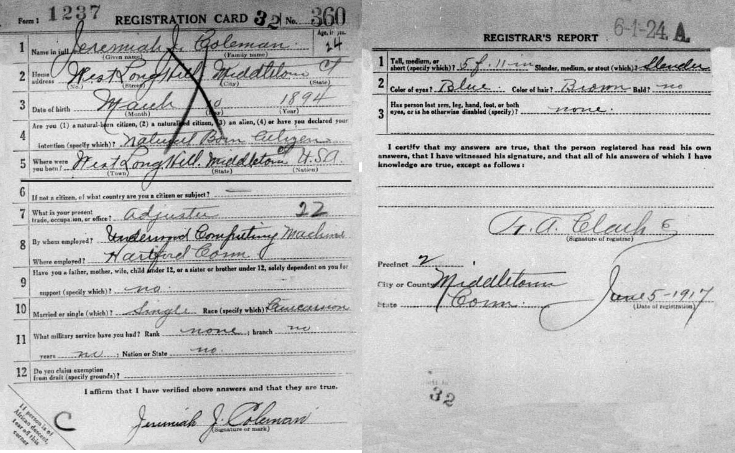 Form 1 1237 REGISTRATION CARD 32 No. 360
1 Name in full Jeremiah J. Coleman. Age, in yrs. 24
(Given name) (Family name)
2 Home address West Long Hill Middletown Ct
(No.) (Street) (City) (State)
3 Date of birth March 10 1894
(Month) (Day) (Year)
4 Are you (1) a natural-born citizen, (2) a naturalized citizen, (3) an alien, (4) or have you declared your
intention (specify which)? Natural Born Citizen
5 Where were you born? West Long Hill Middletown Ct U.S.A.
(Town) (State) (Nation)
6 If not a citizen, of what country are you a citizen or subject?
7 What is your present trade, occupation, or office? Adjuster 22
8 By whom employed? Underwood Computing Machine
Where employed? Hartford Conn
9 Have you a father, mother, wife, child under 12, or a sister or brother under 12, solely dependent on you for
support (specify which)? no.
10 Married or single (which)? Single Race (specify which)? Caucasion
11 What military service have you had? Rank none ; branch no
years no ; Nation or State no
12 Do you claim exemption from draft (specify grounds)?
I affirm that I have verified above answers and that they are true.
C Jeremiah J. Coleman
(Signature or mark)
If person is of
African descent,
tear off this
corner
REGISTRAR'S REPORT 6-1-24. A.
1 Tall, medium, or short (specify which)? 5 f. 11 in Slender, medium, or stout (which)? Slender
2 Color of eyes? Blue. Color of hair? Brown Bald? no
3 Has person lost arm, leg, hand, foot, or both
eyes, or is he otherwise disabled (specify)? none.
I certify that my answers are true, that the person registered has read his own
answers, that I have witnessed his signature, and that all of his answers of which I
have knowledge are true, except as follows:
A. Clark
(Signature of registrar)
Precinct 2
City or County Middletown
State Conn.
June 5-1917
(Date of registration)
32